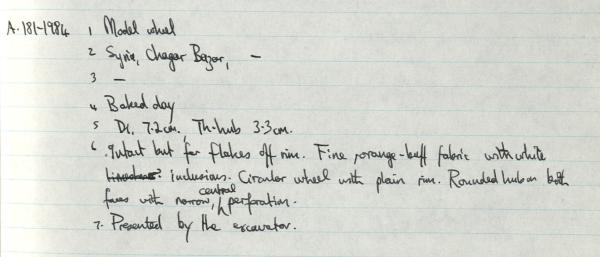 A.181-1984 1 Model wheel
2 Syria, Chagar Bazar, —
3 —
4 Baked clay
5 Di. 7.2cm, Th-hub 3.3cm.
6 Intact but for flakes off rim. Fine, orange-buff fabric with white
inclusions. Circular wheel with plain rim. Rounded hub on both
faces with narrow, central perforation.
7. Presented by the excavator.